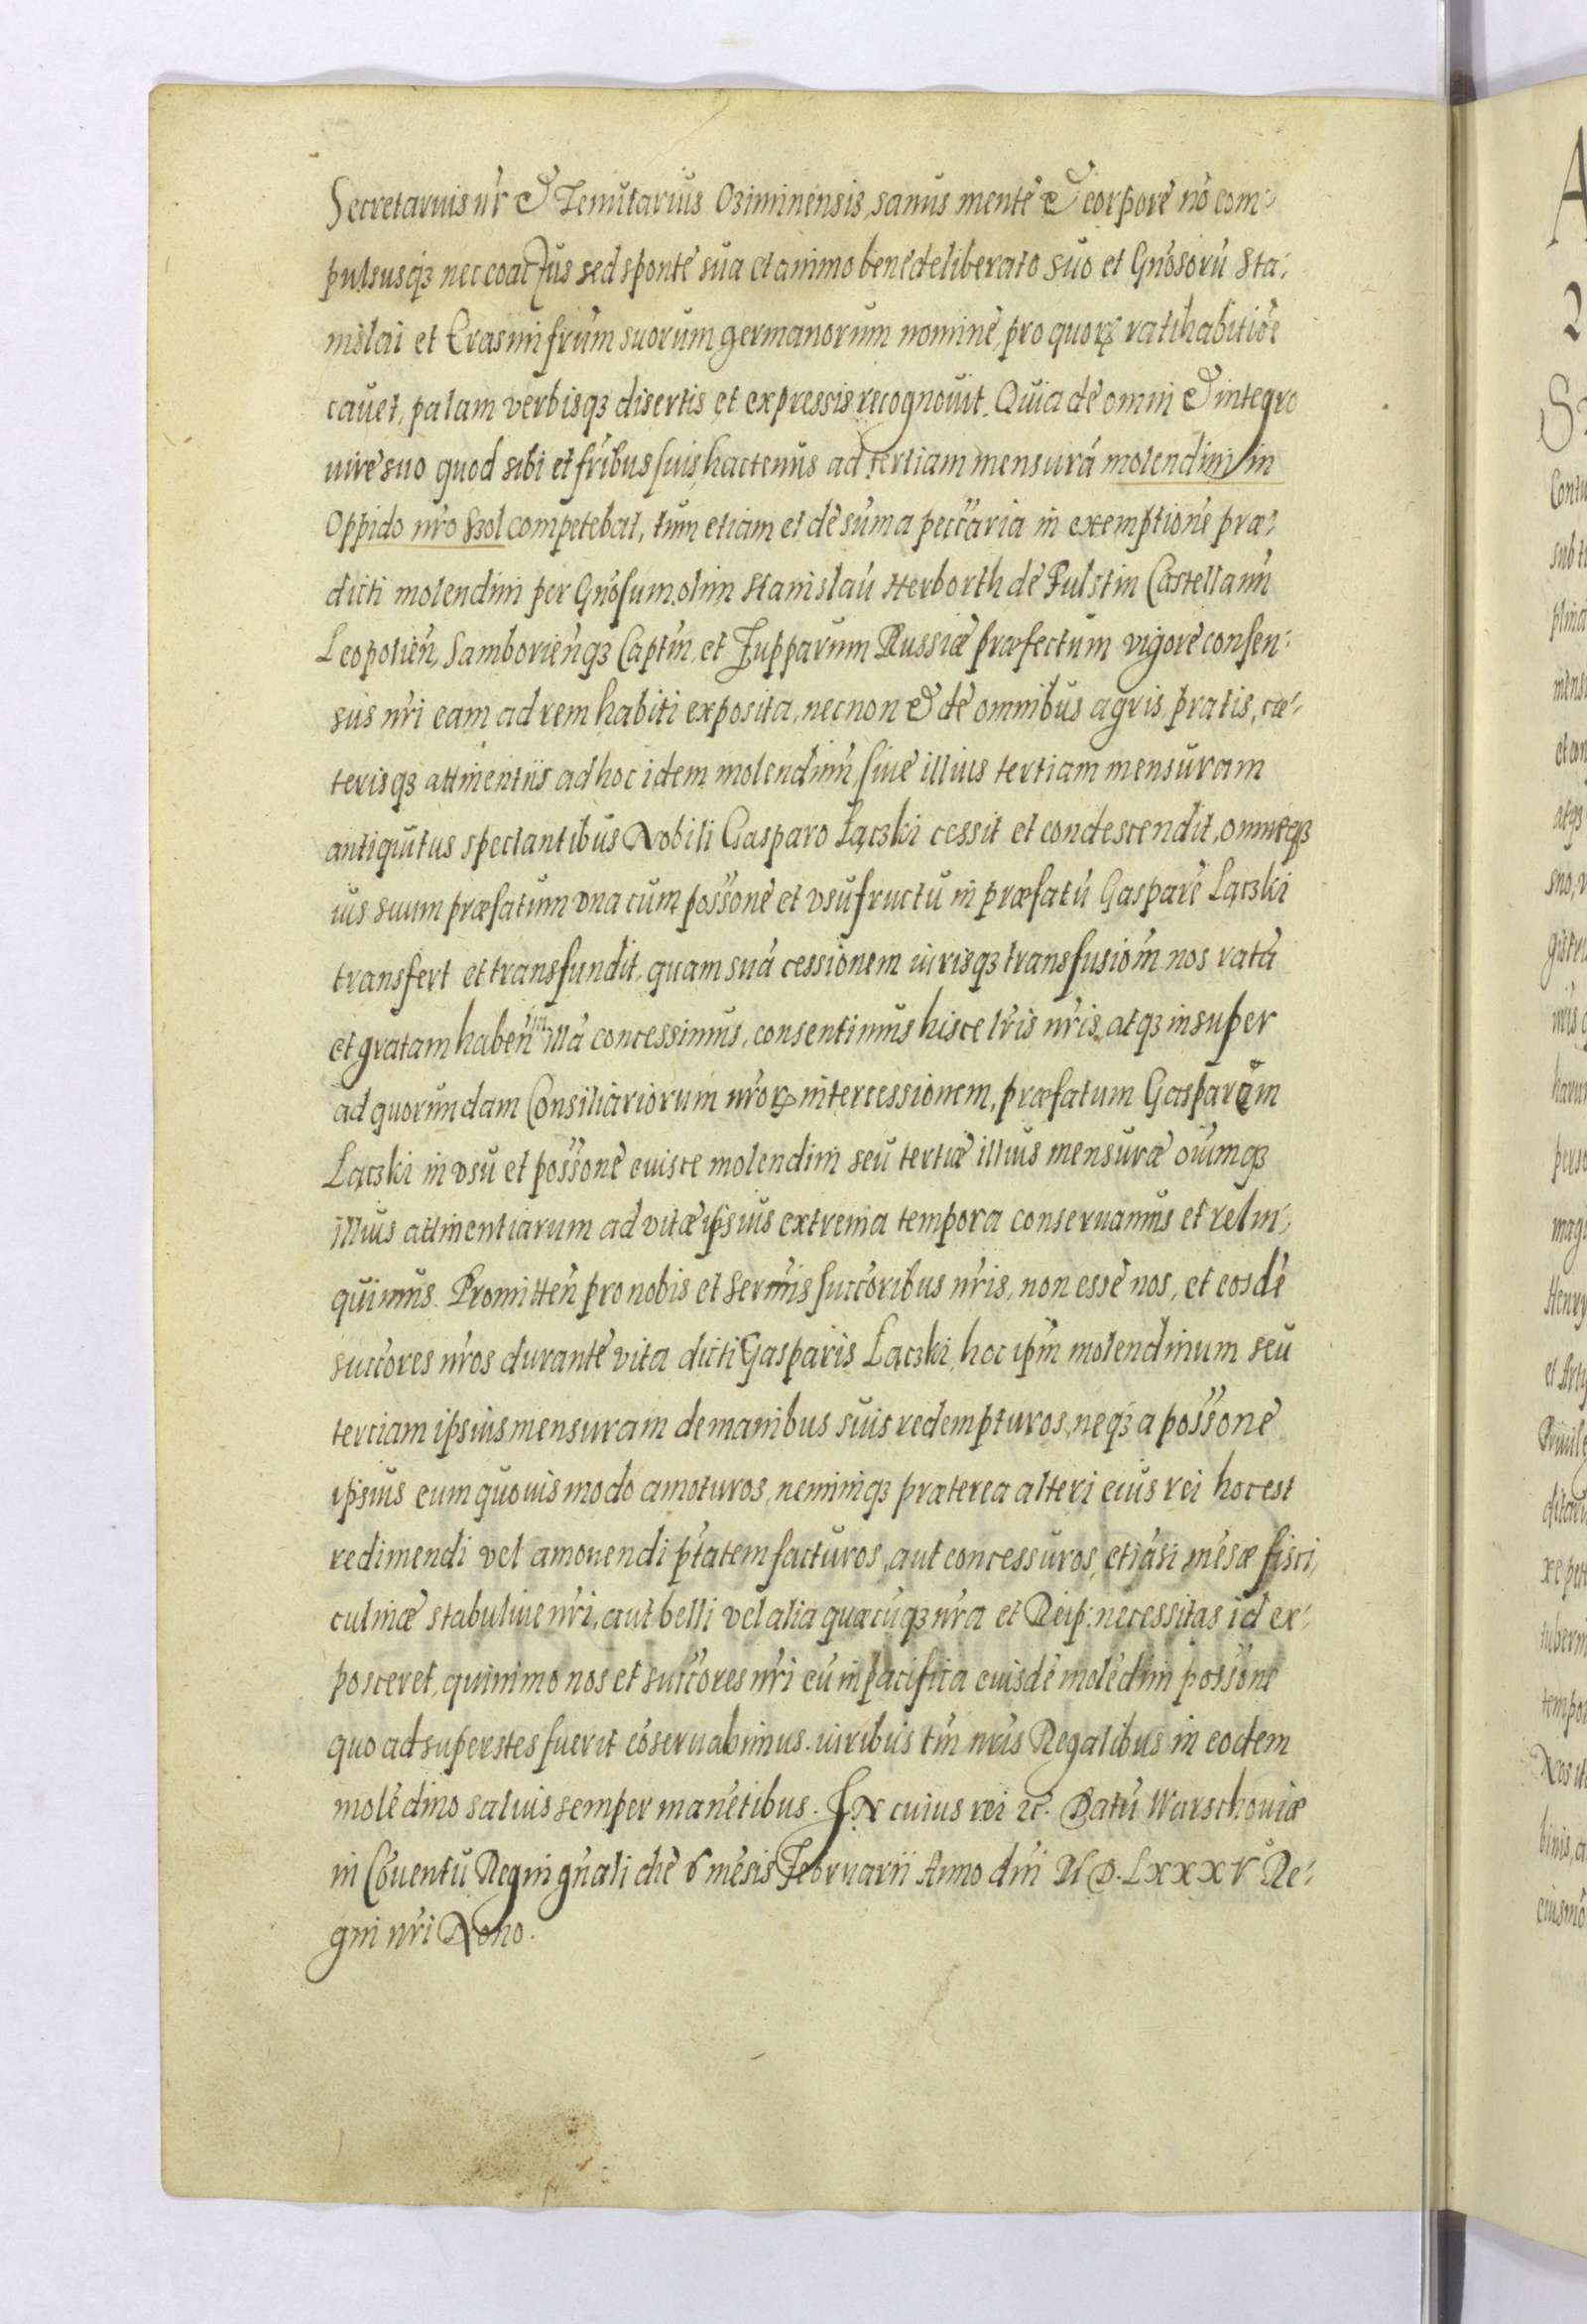 Secretarius nr̃ & Tenutarius Oziminensis, sanus mente & corpore nõ com-
pulsusq3 nec coactus sed sponte sua et animo bene deliberato suo et Gñosorũ Sta-
nislai et Erasmi frũm suorum germanorum nomine, pro quorꝝ ratihabitiõe
cauet, palam verbisq3 disertis et expressis recognouit. Quia de omni & integro
iure suo quod sibi et frĩbus suis hactenus ad tertiam mensurã molendini in
Oppido nrõ Szol competebat, tum etiam et de sũma peccãria in exemptione præ-
dicti molendini per Gñosum olim Stanislaũ Herborth de Fulstin Castellanũ
Leopolien̄, Samborien̄q3 Captm̃, et Zupparum Russiæ præfectum vigore consen-
sus nrĩ eam ad rem habiti exposita, necnon & de omnibus agris, pratis, cæ-
terisq3 attinentiis ad hoc idem molendinũ, siue illius tertiam mensuram
antiquitus spectantibus Nobili Gasparo Łączki cessit et condescendit, omneq3
ius suum præfatum vna cum possõne et vsufructu in præfatũ Gaspare Łączki
transfert et transfundit, quam suã cessionem iurisq3 transfusiom̃ nos ratã
et gratam haben̄ in illã concessimus, consentimus hisce lrĩs nrĩs, atq3 insuper
ad quorundam Consiliariorum nrõrꝝ intercessionem, præfatum Gasparum
Łączki in vsu et possõne euisce molendini seu tertiæ illius mensuræ oĩumq3
illius attinentiarum ad vitæ ipsius extrema tempora conseruamus et relin-
quimus. Promitten̄ pro nobis et Sermĩs succõribus nrĩs, non esse nos, et eosdẽ
succõres nrõs durante vita dicti Gasparis Łączki hoc ipm̃ molendinum seu
terciam ipsius mensuram de manibus suis redempturos, neq3 a possõne
ipsius eum quouis modo amoturos, neminiq3 præterea alteri eius rei hoc est
redimendi vel amouendi ptãtem facturos, aut concessuros, etiãsi mẽsæ fisci,
culinæ stabuliue nrĩ, aut belli vel alia quæcũq3 nrã et Reip: necessitas id ex-
posceret, quinimo nos et succõres nrĩ eũ in pacifica euisdẽ molẽdini possõne
quo ad superstes fuerit cõseruabimus. iuribus tm̃ nrĩs Regalibus in eodem
molẽdino saluis semper manẽtibus. In cuius rei &c. Datũ Warschouiæ
in Cõuentu Regni gñali die 6 mẽsis Februarii Anno dñi M D. LXXXV Re-
gni nrĩ Nono.